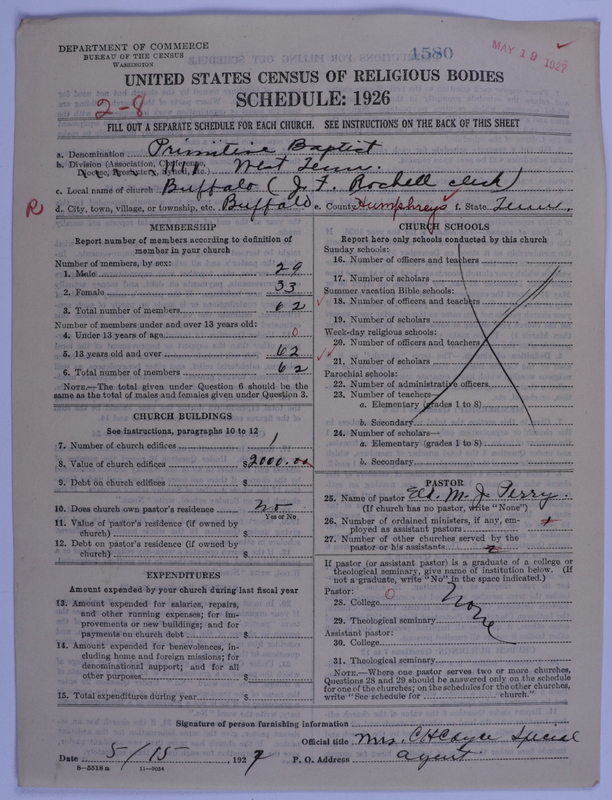 DEPARTMENT OF COMMERCE
BUREAU OF THE CENSUS
WASHINGTON
1580
MAY 19 1927
UNITED STATES CENSUS OF RELIGIOUS BODIES
SCHEDULE: 1926
2-8
FILL OUT A SEPARATE SCHEDULE FOR EACH CHURCH. SEE INSTRUCTIONS ON THE BACK OF THIS SHEET
a. Denomination Primitive Baptist
b. Division (Association, Conference, Diocese, Presbytery, Synod, etc.) West Tenn.
c. Local name of church Buffalo (J. F. Rochell clerk)
R d. City, town, village, or township, etc. Buffalo e. County Humphreys f. State Tenn.
MEMBERSHIP
Report number of members according to definition of member in your church
Number of members, by sex:
1. Male 29
2. Female 33
3. Total number of members 62
Number of members under and over 13 years old:
4. Under 13 years of age 0
5. 13 years old and over 62
6. Total number of members 62
NOTE.—The total given under Question 6 should be the same as the total of males and females given under Question 3.
CHURCH BUILDINGS
See instructions, paragraphs 10 to 12
7. Number of church edifices 1
8. Value of church edifices $2000.00
9. Debt on church edifices $
10. Does church own pastor's residence no
Yes or No
11. Value of pastor's residence (if owned by church) $
12. Debt on pastor's residence (if owned by church) $
EXPENDITURES
Amount expended by your church during last fiscal year
13. Amount expended for salaries, repairs, and other running expenses; for improvements or new buildings; and for payments on church debt $
14. Amount expended for benevolences, including home and foreign missions; for denominational support; and for all other purposes $
15. Total expenditures during year $
CHURCH SCHOOLS
Report here only schools conducted by this church
Sunday schools:
16. Number of officers and teachers
17. Number of scholars
Summer vacation Bible schools:
18. Number of officers and teachers
19. Number of scholars
Week-day religious schools:
20. Number of officers and teachers
21. Number of scholars
Parochial schools:
22. Number of administrative officers
23. Number of teachers—
a. Elementary (grades 1 to 8)
b. Secondary
24. Number of scholars—
a. Elementary (grades 1 to 8)
b. Secondary
PASTOR
25. Name of pastor Eld. M. J. Perry.
(If church has no pastor, write "None")
26. Number of ordained ministers, if any, employed as assistant pastors
27. Number of other churches served by the pastor or his assistants 2
If pastor (or assistant pastor) is a graduate of a college or theological seminary, give name of institution below. (If not a graduate, write "No" in the space indicated.)
Pastor:
28. College 0 none
29. Theological seminary
Assistant pastor:
30. College
31. Theological seminary
NOTE.—Where one pastor serves two or more churches, Questions 28 and 29 should be answered only on the schedule for one of the churches; on the schedules for the other churches, write "See schedule for church."
Signature of person furnishing information
Official title Mrs. Special
Date 5/15, 1927 P. O. Address agent
8-5318 a 11-9034